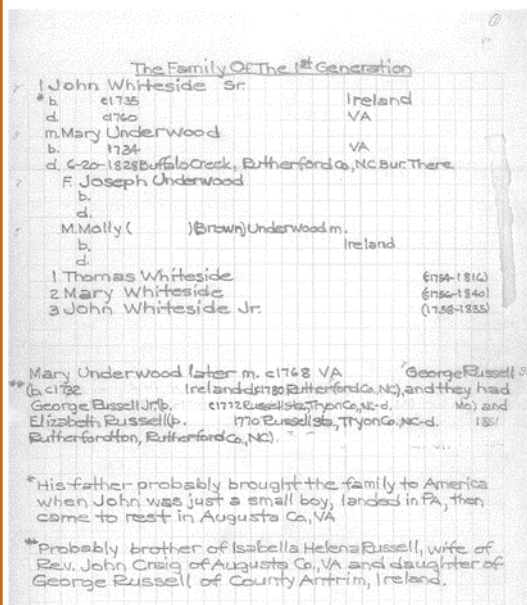 The Family Of The 1st Generation
1 John Whiteside Sr.
* b. c1735 Ireland
d. c1760 VA
m. Mary Underwood
b. 1734 VA
d. 6-20-1828 Buffalo Creek, Rutherford Co, NC Bur. There
F. Joseph Underwood
b.
d.
M. Molly ( )(Brown) Underwood m.
b. Ireland
d.
1 Thomas Whiteside (c1754-1816)
2 Mary Whiteside (c1756-1840)
3 John Whiteside Jr. (1758-1835)
Mary Underwood later m. c1768 VA George Russell S
** (b. c1732 Ireland d. c1780 Rutherford Co, NC), and they had
George Russell Jr. (b. c1772 Russell sta, Tryon Co, NC-d. Mo) and
Elizabeth Russell (b. 1770 Russell sta, Tryon Co, NC-d.
Rutherfordton, Rutherford Co, NC).
*His father probably brought the family to America
when John was just a small boy, landed in PA, then
came to rest in Augusta Co, VA
**Probably brother of Isabella Helena Russell, wife of
Rev. John Craig of Augusta Co, VA and daughter of
George Russell of County Antrim, Ireland.